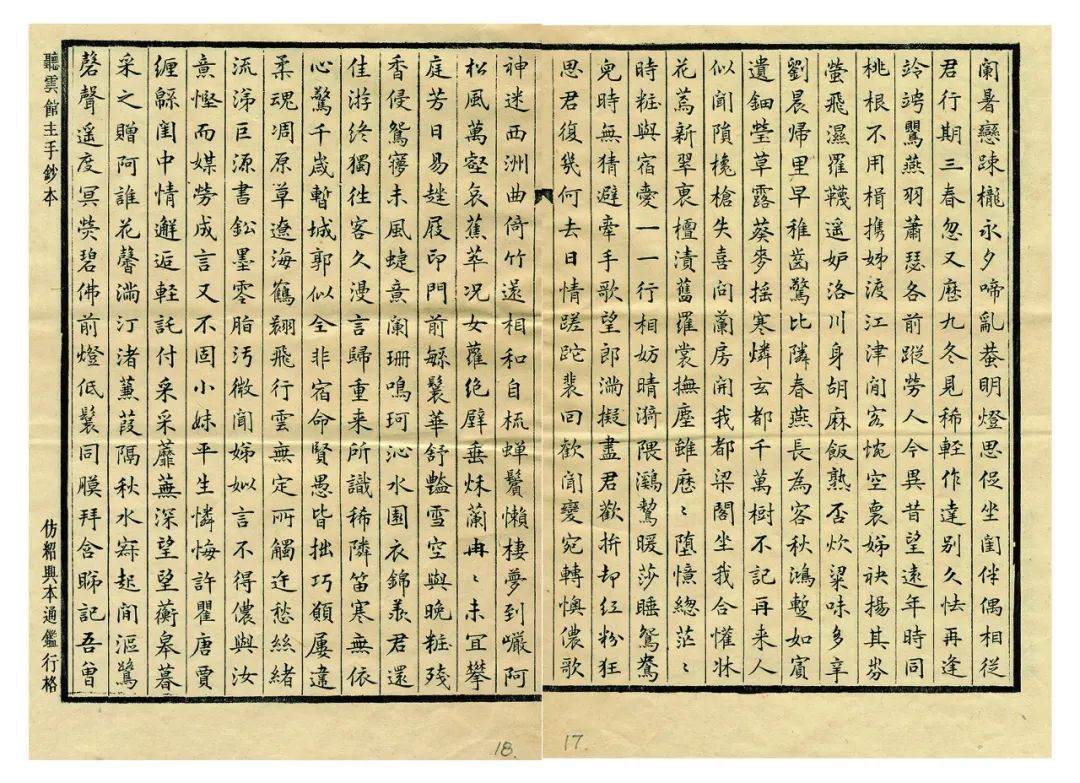 闌暑戀踈櫳永夕啼亂蛬明燈思促坐閨伴偶相従
君行期三春忽又歷九冬見稀輕作達別久怯再逢
竛竮鸎燕羽蕭瑟各前蹤勞人今異昔望遠年時同
桃根不用楫携姊渡江津閒客惋空裏姊袂揚其芬
螢飛濕羅韈遥妒洛川身胡麻飯熟否炊粱味多辛
劉晨帰里早稚齒驚比隣春燕長為客秋鴻暫如賓
遺鈿瑩草露葵麥揺寒燐玄都千萬樹不記再来人
似聞隕欃槍失喜問蘭房開我都梁閣坐我合懽牀
花蔫新翠裛檀漬舊羅裳撫塵雖歷〻堕憶緫茫〻
時粧與宿愛一一行相妨晴漪隈鸂鶒暖莎睡鴛鴦
兒時無猜避牽手歌望郎満擬盡君歡拚却紅粉狂
思君復幾何去日情蹉跎裴回歡聞變宛轉懊儂歌
神迷西洲曲倚竹遠相和自梳蟬鬢懶棲夢到巖阿
松風萬壑哀蕉萃况女蘿绝壁垂秌蘭冉〻未冝攀
庭芳日易趖屐印門前蘇鬟華舒豔雪空與晚粧残
香侵鴛寢未風蜨意闌珊鳴珂沁水園衣錦羨君還
佳游终獨徃客久漫言歸重来所識稀隣笛寒無依
心驚千歳暫城郭似全非宿命賢愚皆拙巧顛屢違
柔魂凋原草遼海鶴翻飛行雲無定所觸迕愁絲緒
流涕巨源書鈆墨零脂汚微聞娣姒言不得儂與汝
意慳而媒勞成言又不固小妹平生憐悔許瞿唐賈
纏緜閨中情邂逅輕託付采采蘼蕪深望望蘅皋暮
采之贈阿誰花馨満汀渚蒹葭隔秋水寐起閒漚鷺
磬聲遥度冥熒碧佛前燈低鬟同膜拜含睇記吾曾
聽雲館主手鈔本
仿紹興本通鑑行格
18
17.